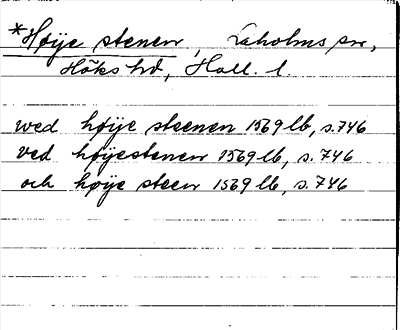 *Høije stenen, Laholms sn,
Höks hd, Hall. l.
wed høije steenen 1569 lb, s. 746
ved høijestenen 1569 lb, s. 746
och høije steen 1569 lb, s. 746